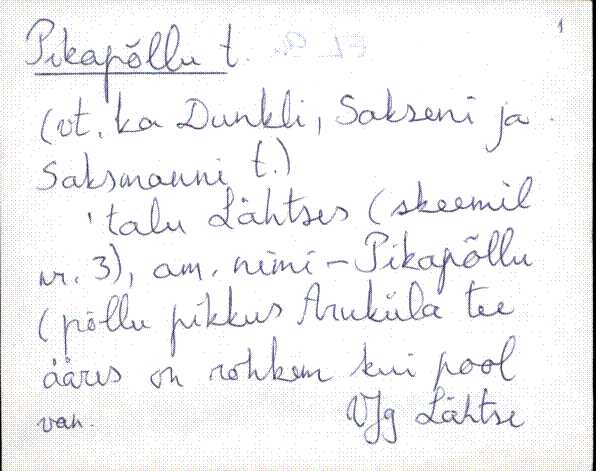 1
Pikapõllu t.
(vt. ka Dunkli, Sakseni ja
Saksmanni t.)
talu Lähtses (skeemil
nr. 3), am. nimi – Pikapõllu
(põllu pikkus Aruküla tee
ääres on rohkem kui pool
Jõg Lähtse